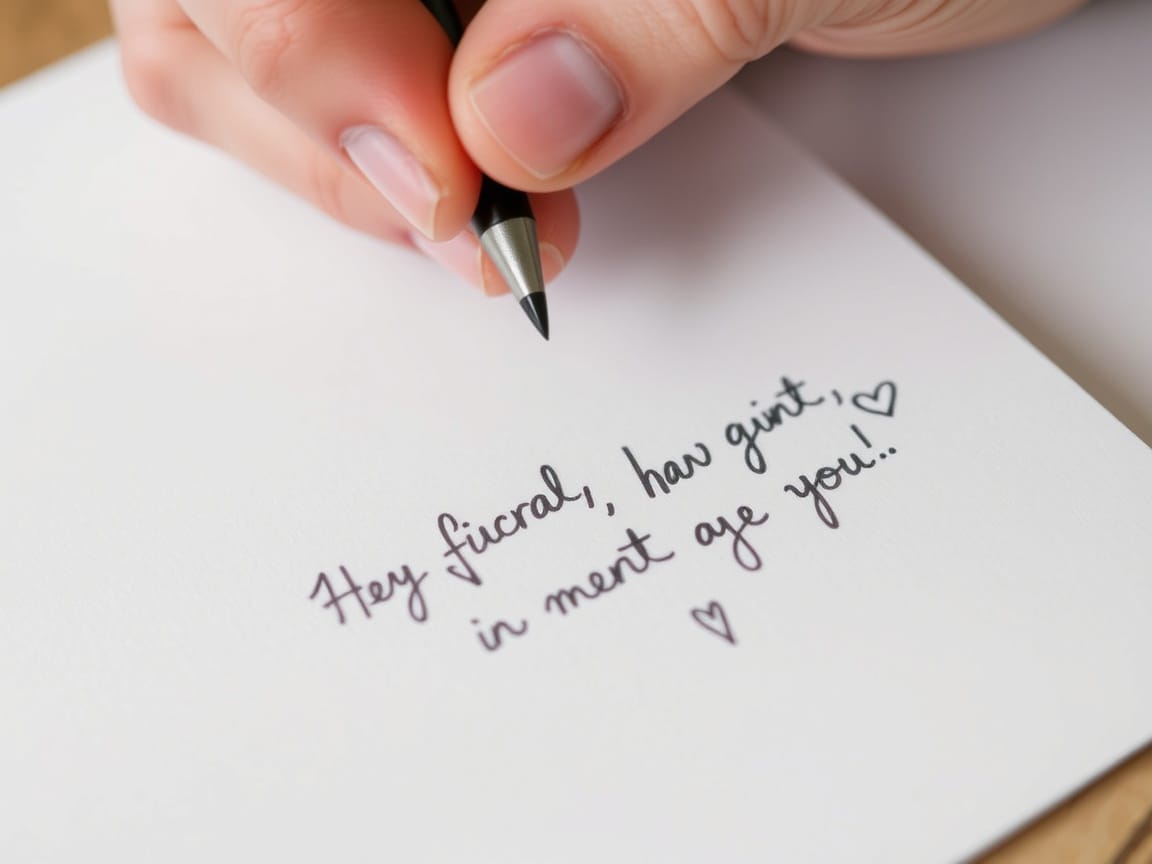 Hey fiicral,, haw gint, ♡
in ment aye you!..
♡